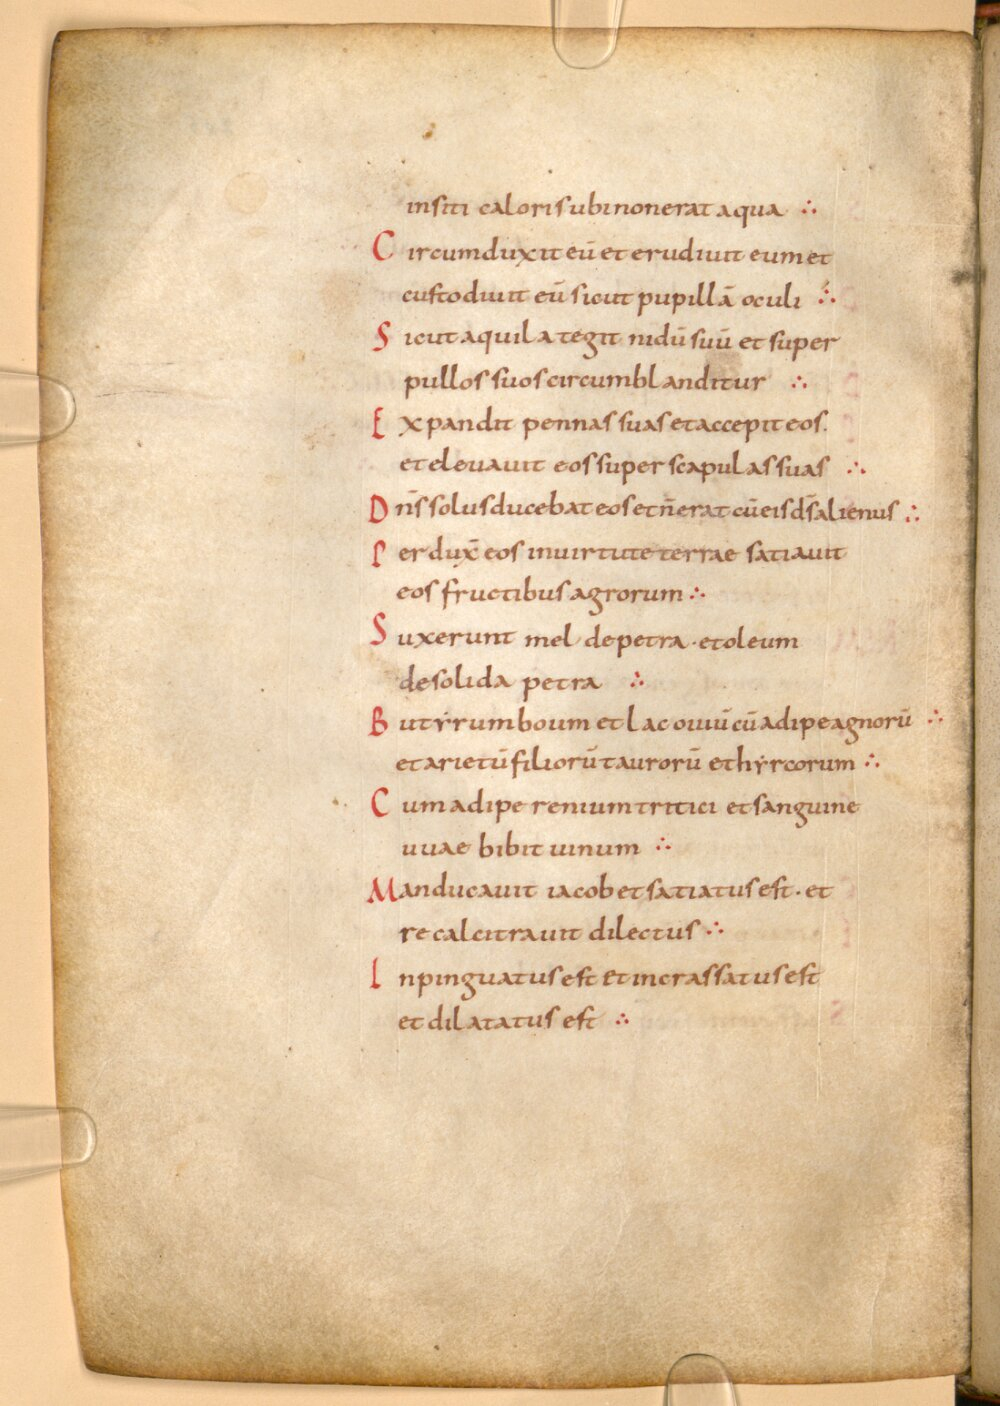 insiti caloris ubi non erat aqua ∴
Circumduxit eū et erudiuit eum et
custodiuit eū sicut pupillā oculi ∴
Sicut aquila tegit nidū suū et super
pullos suos circumblanditur ∴
Expandit pennas suas et accepit eos.
et eleuauit eos super scapulas suas ∴
Dn̄s solus ducebat eos et n̄ erat cū eis ds̄ alienus ∴
Perdux̄ eos in uirtute terrae satiauit
eos fructibus agrorum ∴
Suxerunt mel de petra · et oleum
de solida petra ∴
Butẏrum boum et lac ouiū cū adipe agnorū ∴
et arietū filiorū taurorū et hẏrcorum ∴
Cum adipe renium tritici et sanguine
uuae bibit uinum ∴
Manducauit iacob et satiatus est · et
recalcitrauit dilectus ∴
Inpinguatus est et incrassatus est
et dilatatus est ∴